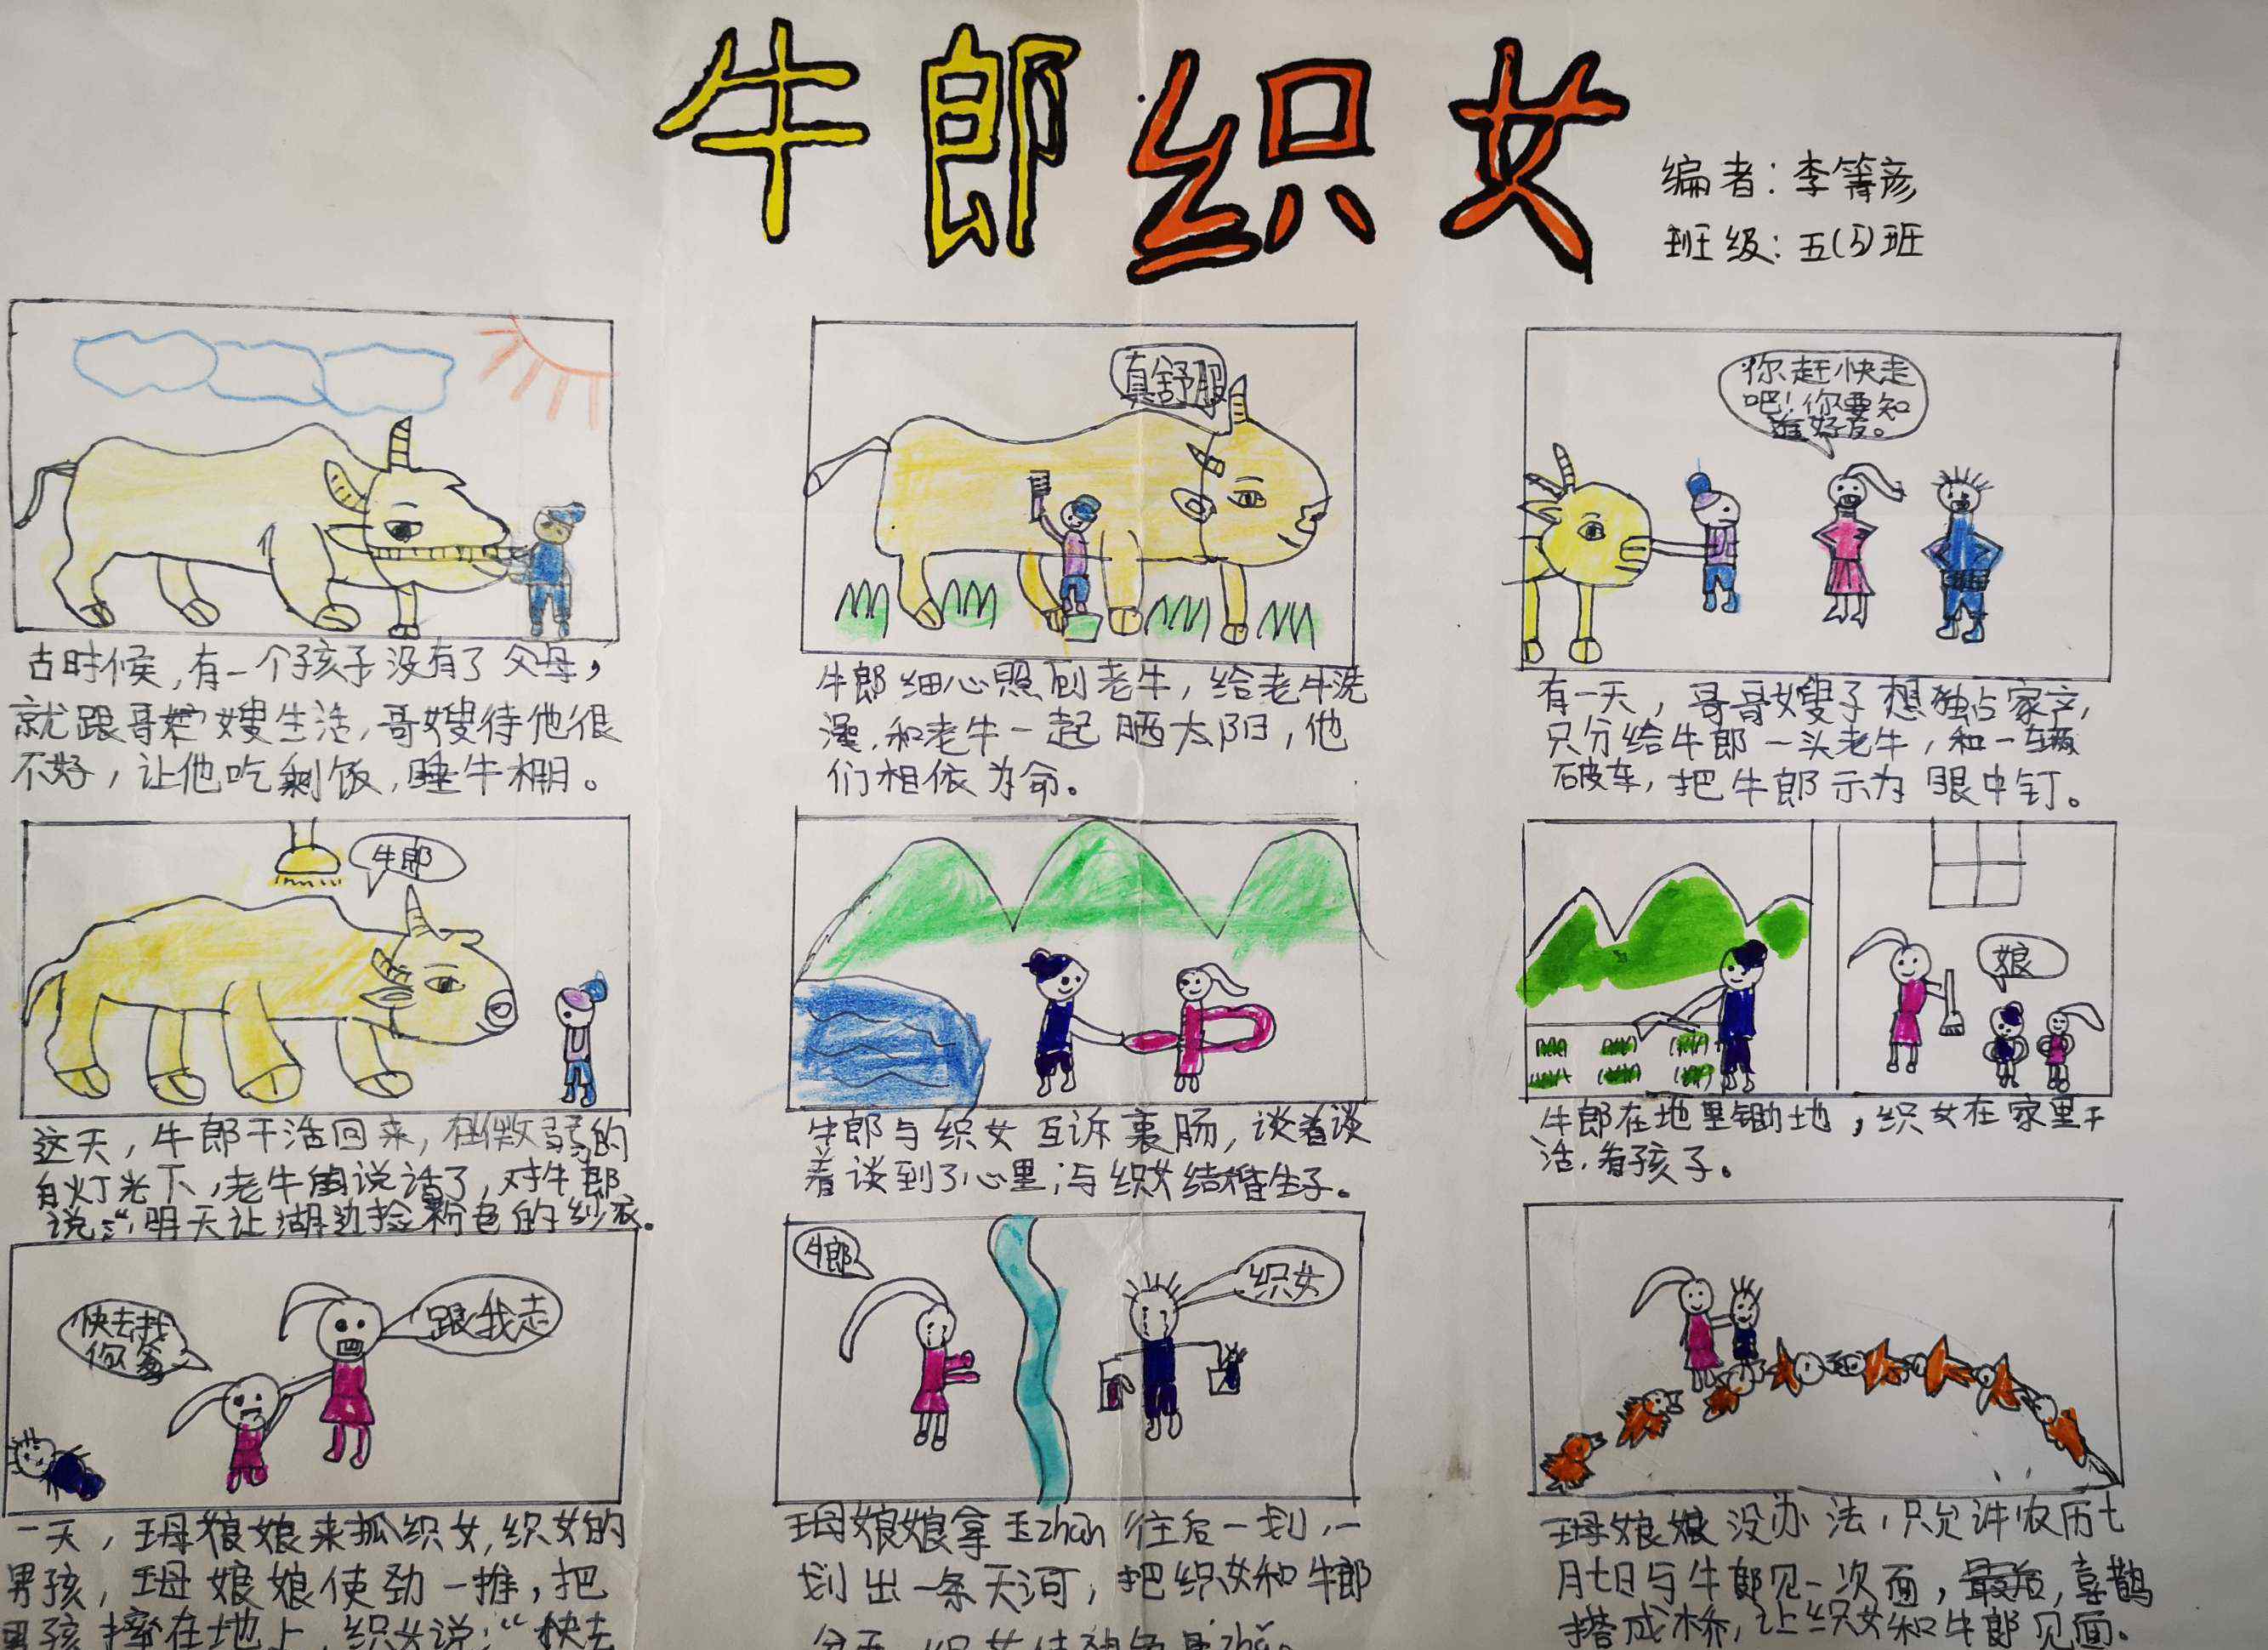 牛郎织女
编者：李箐彦
班级：五(5)班
古时候，有一个孩子没有了父母，
就跟哥嫂生活，哥嫂待他很
不好，让他吃剩饭，睡牛棚。
真舒服
牛郎细心照顾老牛，给老牛洗
澡，和老牛一起晒太阳，他
们相依为命。
你赶快走
吧！你要知
好歹。
有一天，哥哥嫂子想独占家产，
只分给牛郎一头老牛，和一辆
破车，把牛郎示为眼中钉。
牛郎
这天，牛郎干活回来，在微弱的
灯光下，老牛说话了，对牛郎
说：“明天让湖边捡粉色的纱衣。
牛郎与织女互诉衷肠，谈着谈
着谈到了心里，与织女结婚生子。
娘
牛郎在地里锄地，织女在家里干
活，看孩子。
快去找
你爹
跟我走
一天，王母娘娘来抓织女，织女的
男孩，王母娘娘使劲一推，把
男孩摔在地上，织女说：“快去
牛郎
织女
王母娘娘拿玉zhān往后一划，一
划出一条天河，把织女和牛郎
织女
王母娘娘没办法，只允许农历七
月七日与牛郎见一次面，最后，喜鹊
搭成桥，让织女和牛郎见面。